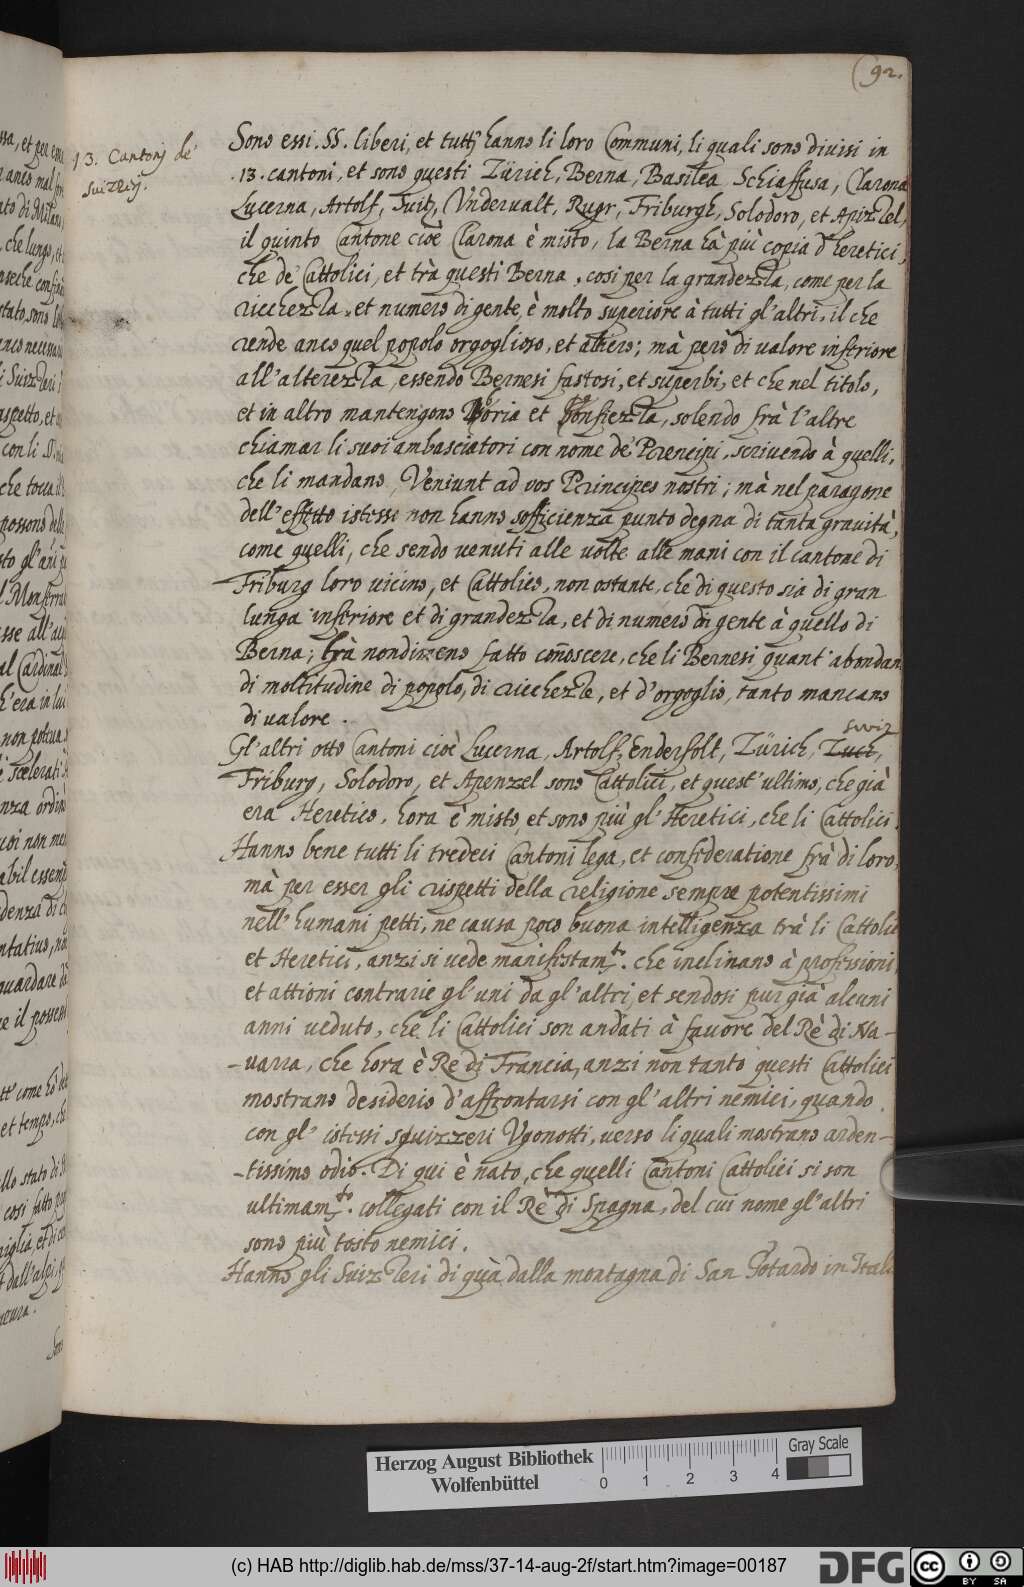 92.
13. Cantonj de'
suizzerj.
Sono essi SS. liberi, et tutti hanno li loro Communi, li quali sono divisi in
.13. cantoni, et sono questi Zürich, Berna, Basilea, Schiaffusa, Clarona
Lucerna, Artolf, Suit, Undervalt, Rugr, Friburgh, Solodoro, et Apizzel,
il quinto Cantone cioè Clarona è misto, la Berna hà più copia d'heretici,
che de' Cattolici, et trà questi Berna, cosi per la grandezza, come per la
ricchezza, et numero di gente, è molto superiore à tutti gl'altri, il che
rende anco quel popolo orgoglioso, et altiero; mà però di valore inferiore
all'alterezza, essendo Bernesi fastosi, et superbi, et che nel titolo,
et in altro mantengono Boria et Gonfiezza, solendo frà l'altre
chiamar li suoi ambasciatori con nome de' Prencipi, scrivendo à quelli,
che li mandano, Veniunt ad vos Principes nostri; mà nel paragone
dell'effetto istesso non hanno sofficienza punto degna di tanta gravità,
come quelli, che sendo venuti alle volte alle mani con il cantone di
Friburg loro vicino, et Cattolico, non ostante, che di questo sia di gran
lunga inferiore et di grandezza, et di numero di gente à quello di
Berna; hà nondimeno fatto coñoscere, che li Bernesi quant'abondan
di moltitudine di popolo, di ricchezze, et d'orgoglio, tanto mancano
di valore.
suiz
Gl'altri otto Cantoni cioè Lucerna, Artolf, Endersolt, Zürich, Zuch,
Friburg, Solodoro, et Apenzel sono Cattolici, et quest'ultimo, che già
era Heretico, hora è misto, et sono più gl'Heretici, che li Cattolici.
Hanno bene tutti li tredeci Cantoni lega, et confideratione frà di loro,
mà per esser gli rispetti della religione sempre potentissimi
nell'humani petti, ne causa poco buona intelligenza trà li Cattolici
et Heretici, anzi si vede manifestam.te che inclinano à professioni,
et attioni contrarie gl'uni da gl'altri, et sendosi pur già alcuni
anni veduto, che li Cattolici son andati à favore del Rè di Na-
-varra, che hora è Re di Francia, anzi non tanto questi Cattolici
mostrano desiderio d'affrontarsi con gl'altri nemici, quando
con gl'istessi squizzeri Vgonotti, verso li quali mostrano arden-
-tissimo odio. Di qui è nato, che quelli Cantoni Cattolici si son
ultimam.te collegati con il Rè di Spagna, del cui nome gl'altri
sono più tosto nemici.
Hanno gli Suizzeri di quà dalla montagna di San Gotardo in Itali
Herzog August Bibliothek
Wolfenbüttel
0 1 2 3 4
Gray Scale
(c) HAB http://diglib.hab.de/mss/37-14-aug-2f/start.htm?image=00187
DFG
cc BY SA